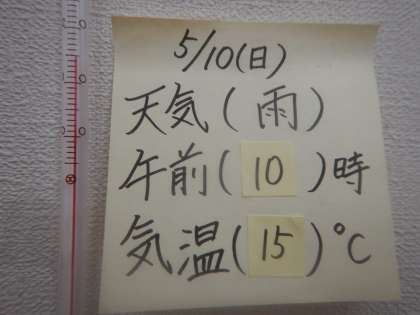 5/10(日)
天気(雨)
午前(10)時
気温(15)℃